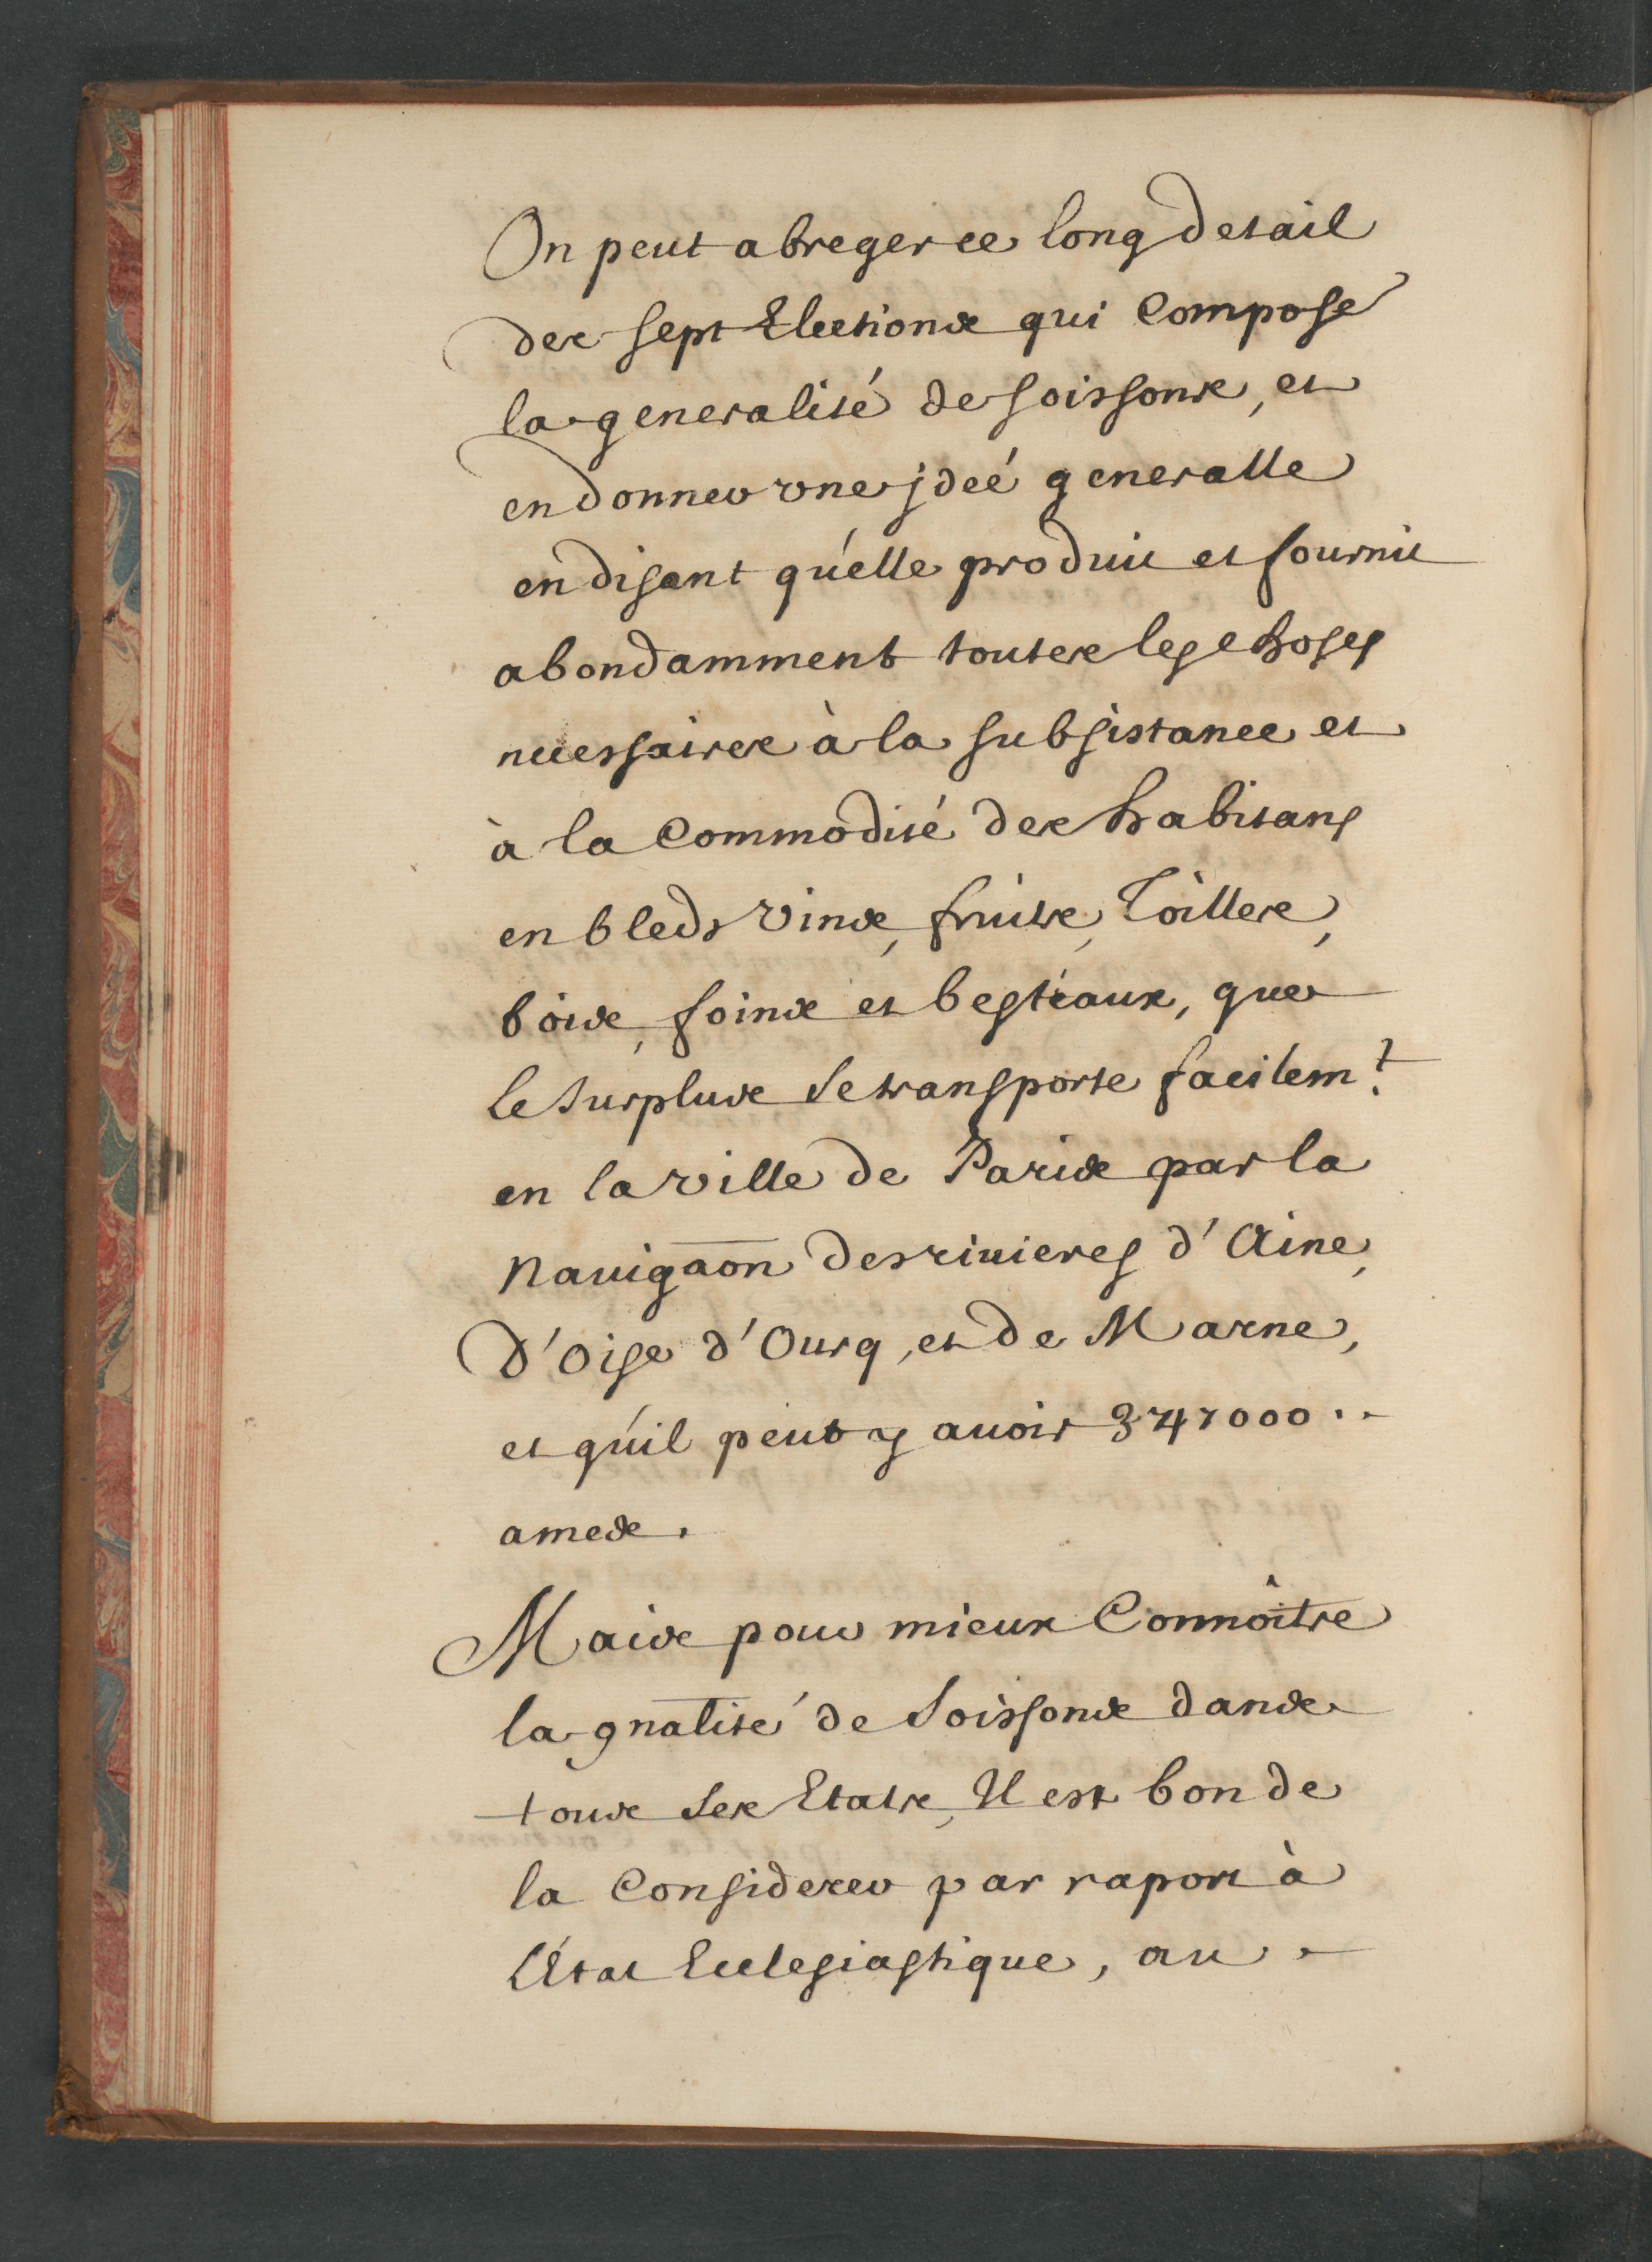 On peut abreger ce long detail
des sept Elections qui compose
la generalité de Soissons, et
en donner vne jdeé generalle
en disant qu'elle produit et fournit
abondamment toutes les choses
necessaires à la subsistance et
à la Commodité des habitans
en bleds vins, fruits, Toilles,
bois, foins et bestiaux, que
le surplus se transporte facilem.t
en la ville de Paris par la
Nauigaōn des riuieres d'Aine,
D'Oise d'Ourq, et de Marne,
et qu'il peut y auoir 347000..
ames.
Mais pour mieux Connoître
la gnālité de Soissons dans
tous ses Etats, Il est bon de
la Considerer par raport à
L'Etat Ecclesiastique, au